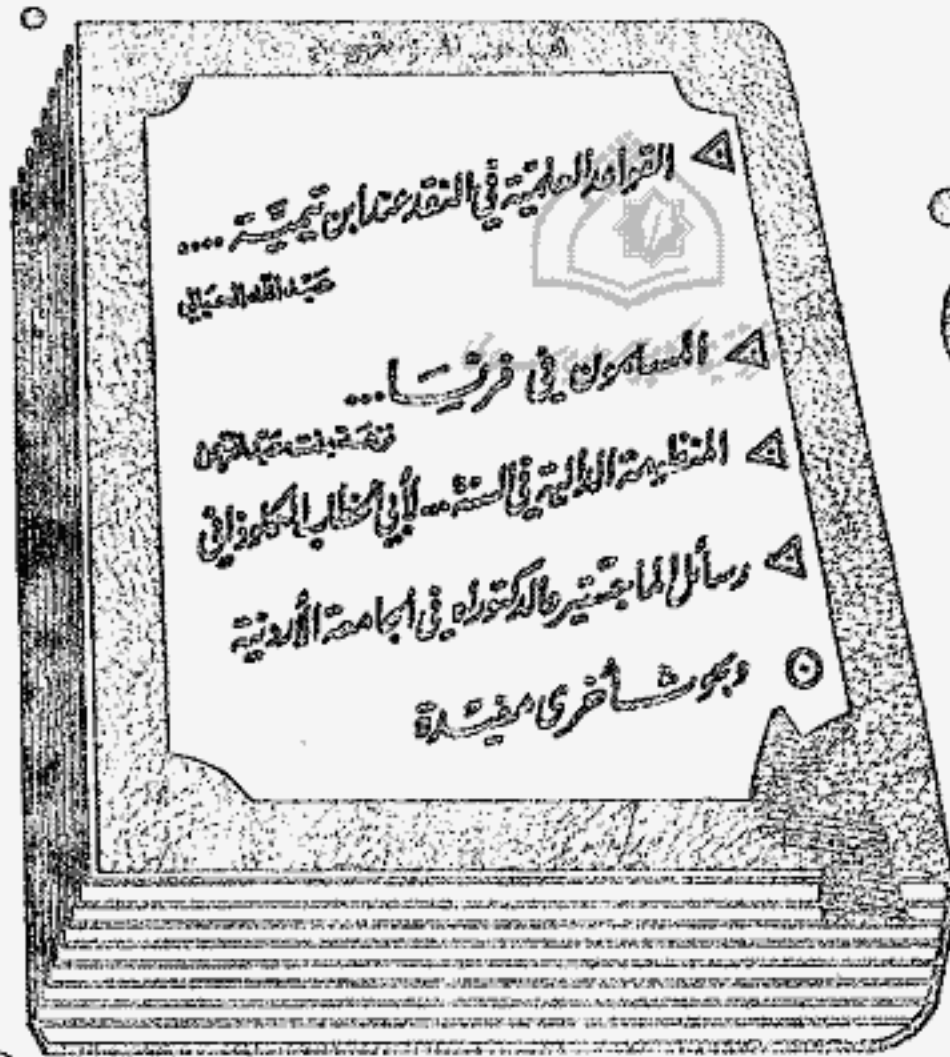 القواعد العلمية في النقد عند ابن تيمية ....
عبد الله الحيالي
المسلمون في فرنسا ...
بنت عبد الرحمن
المنظومة الدالية في السنة .. لأبي الخطاب الكلوذاني
رسائل الماجستير والدكتوراه في الجامعة الأردنية
وبحوث أخرى مفيدة